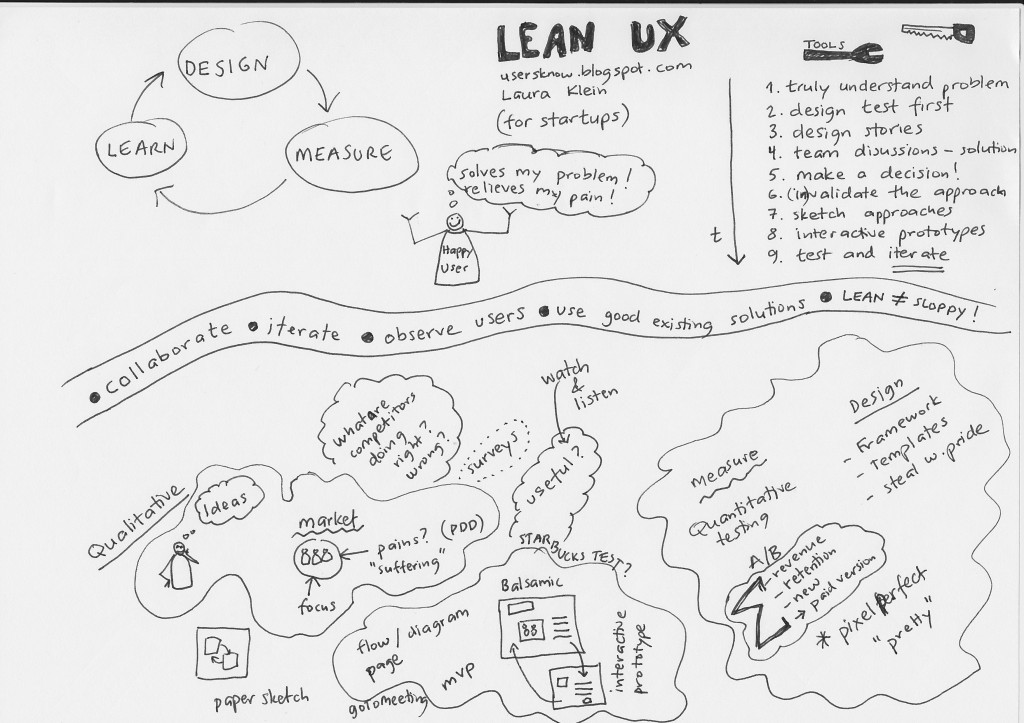 LEAN UX
usersknow.blogspot.com
Laura Klein
(for startups)
DESIGN
MEASURE
LEARN
solves my problem!
relieves my pain!
Happy
User
TOOLS
t
1. truly understand problem
2. design test first
3. design stories
4. team disussions - solution
5. make a decision!
6. (in)validate the approach
7. sketch approaches
8. interactive prototypes
9. test and iterate
• collaborate • iterate • observe users • use good existing solutions • LEAN ≠ SLOPPY!
Qualitative
Ideas
market
focus
pains? (PDD)
"suffering"
what are
competitors
doing
right?
wrong?
surveys
watch
&
listen
useful?
STARBUCKS TEST?
paper sketch
flow/diagram
page
gotomeeting
mvp
Balsamic
interactive
prototype
measure
Quantitative
testing
A/B
- revenue
- retention
- new
→ paid version
* pixel perfect
"pretty"
Design
- Framework
- Templates
- steal w. pride